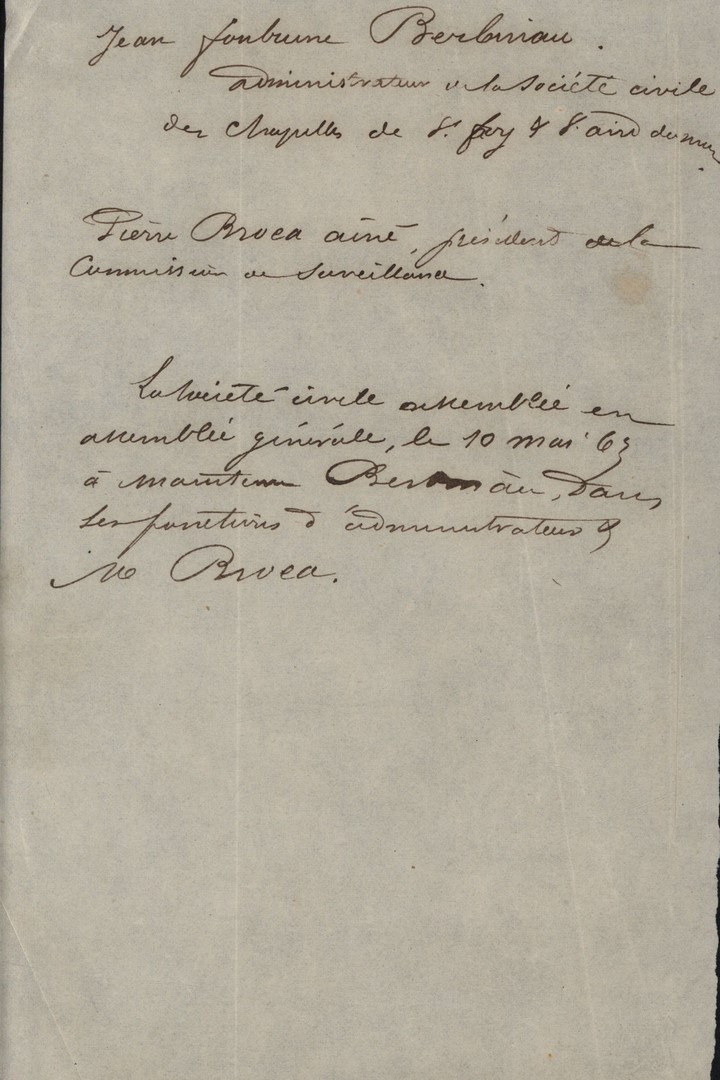 Jean fonbrune Berbiniau.
administrateur de la Société civile
des Chapelles de St. foy & St. and du
Pierre Broca ainé, président de la
Commission de Surveillance.
La Société civile assemblée en
assemblée générale, le 10 mai 63
à maintenu Berbiniau, Dans
ses fonctions d'administrateur &
Mr Broca.